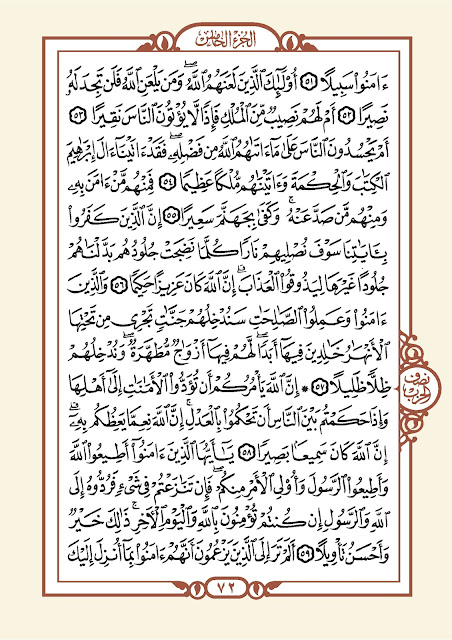 الجزء الخامس
ءَامَنُوا۟ سَبِيلًا ٥١ أُو۟لَـٰٓئِكَ ٱلَّذِينَ لَعَنَهُمُ ٱللَّهُ ۖ وَمَن يَلْعَنِ ٱللَّهُ فَلَن تَجِدَ لَهُۥ
نَصِيرًا ٥٢ أَمْ لَهُمْ نَصِيبٌ مِّنَ ٱلْمُلْكِ فَإِذًا لَّا يُؤْتُونَ ٱلنَّاسَ نَقِيرًا ٥٣
أَمْ يَحْسُدُونَ ٱلنَّاسَ عَلَىٰ مَآ ءَاتَىٰهُمُ ٱللَّهُ مِن فَضْلِهِۦ ۖ فَقَدْ ءَاتَيْنَآ ءَالَ إِبْرَٰهِيمَ
ٱلْكِتَـٰبَ وَٱلْحِكْمَةَ وَءَاتَيْنَـٰهُم مُّلْكًا عَظِيمًا ٥٤ فَمِنْهُم مَّنْ ءَامَنَ بِهِۦ
وَمِنْهُم مَّن صَدَّ عَنْهُ ۚ وَكَفَىٰ بِجَهَنَّمَ سَعِيرًا ٥٥ إِنَّ ٱلَّذِينَ كَفَرُوا۟
بِـَٔايَـٰتِنَا سَوْفَ نُصْلِيهِمْ نَارًا كُلَّمَا نَضِجَتْ جُلُودُهُم بَدَّلْنَـٰهُمْ
جُلُودًا غَيْرَهَا لِيَذُوقُوا۟ ٱلْعَذَابَ ۗ إِنَّ ٱللَّهَ كَانَ عَزِيزًا حَكِيمًا ٥٦ وَٱلَّذِينَ
ءَامَنُوا۟ وَعَمِلُوا۟ ٱلصَّـٰلِحَـٰتِ سَنُدْخِلُهُمْ جَنَّـٰتٍ تَجْرِى مِن تَحْتِهَا
ٱلْأَنْهَـٰرُ خَـٰلِدِينَ فِيهَآ أَبَدًا ۖ لَّهُمْ فِيهَآ أَزْوَٰجٌ مُّطَهَّرَةٌ ۖ وَنُدْخِلُهُمْ
ظِلًّا ظَلِيلًا ٥٧ ۞ إِنَّ ٱللَّهَ يَأْمُرُكُمْ أَن تُؤَدُّوا۟ ٱلْأَمَـٰنَـٰتِ إِلَىٰٓ أَهْلِهَا
وَإِذَا حَكَمْتُم بَيْنَ ٱلنَّاسِ أَن تَحْكُمُوا۟ بِٱلْعَدْلِ ۚ إِنَّ ٱللَّهَ نِعِمَّا يَعِظُكُم بِهِۦٓ ۗ
إِنَّ ٱللَّهَ كَانَ سَمِيعًۢا بَصِيرًا ٥٨ يَـٰٓأَيُّهَا ٱلَّذِينَ ءَامَنُوٓا۟ أَطِيعُوا۟ ٱللَّهَ
وَأَطِيعُوا۟ ٱلرَّسُولَ وَأُو۟لِى ٱلْأَمْرِ مِنكُمْ ۖ فَإِن تَنَـٰزَعْتُمْ فِى شَىْءٍ فَرُدُّوهُ إِلَى
ٱللَّهِ وَٱلرَّسُولِ إِن كُنتُمْ تُؤْمِنُونَ بِٱللَّهِ وَٱلْيَوْمِ ٱلْـَٔاخِرِ ۚ ذَٰلِكَ خَيْرٌ
وَأَحْسَنُ تَأْوِيلًا ٥٩ أَلَمْ تَرَ إِلَى ٱلَّذِينَ يَزْعُمُونَ أَنَّهُمْ ءَامَنُوا۟ بِمَآ أُنزِلَ إِلَيْكَ
نصف
الحزب
٧٢